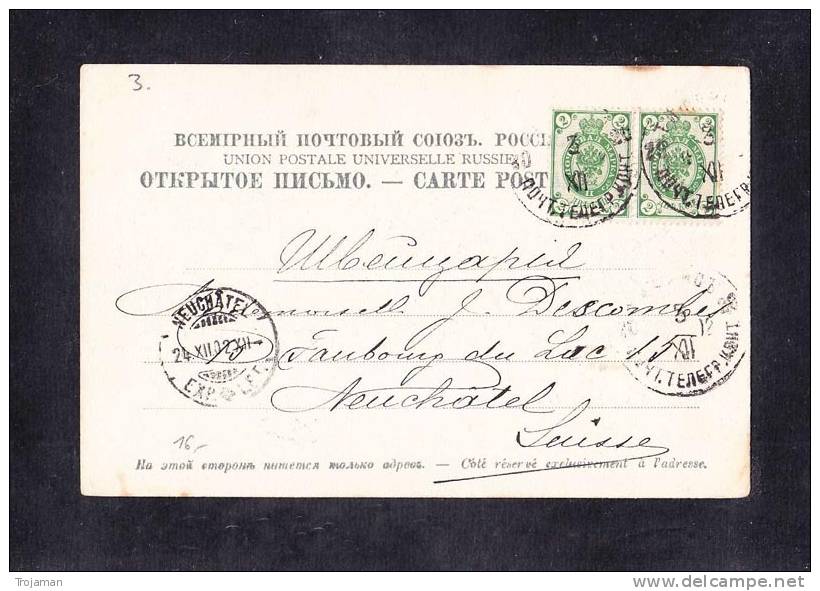 3.
ВСЕМІРНЫЙ ПОЧТОВЫЙ СОЮЗЪ.
UNION POSTALE UNIVERSELLE RUSSIE
ОТКРЫТОЕ ПИСЬМО. — CARTE POST
2 2
2 2
XII XII
ПОЧТ.ТЕЛЕГР. ПОЧТ.ТЕЛЕГР.
Швейцарія
J. Descombes
NEUCHÂTEL
24 XII.02
EXP. LET.
Faubourg du Lac 15
5
XII
ПОЧТ.ТЕЛЕГР.
Neuchâtel
Suisse
16,-
На этой сторонѣ пишется только адресъ. — Côté réservé exclusivement à l'adresse.
Trojaman
delcampe.net